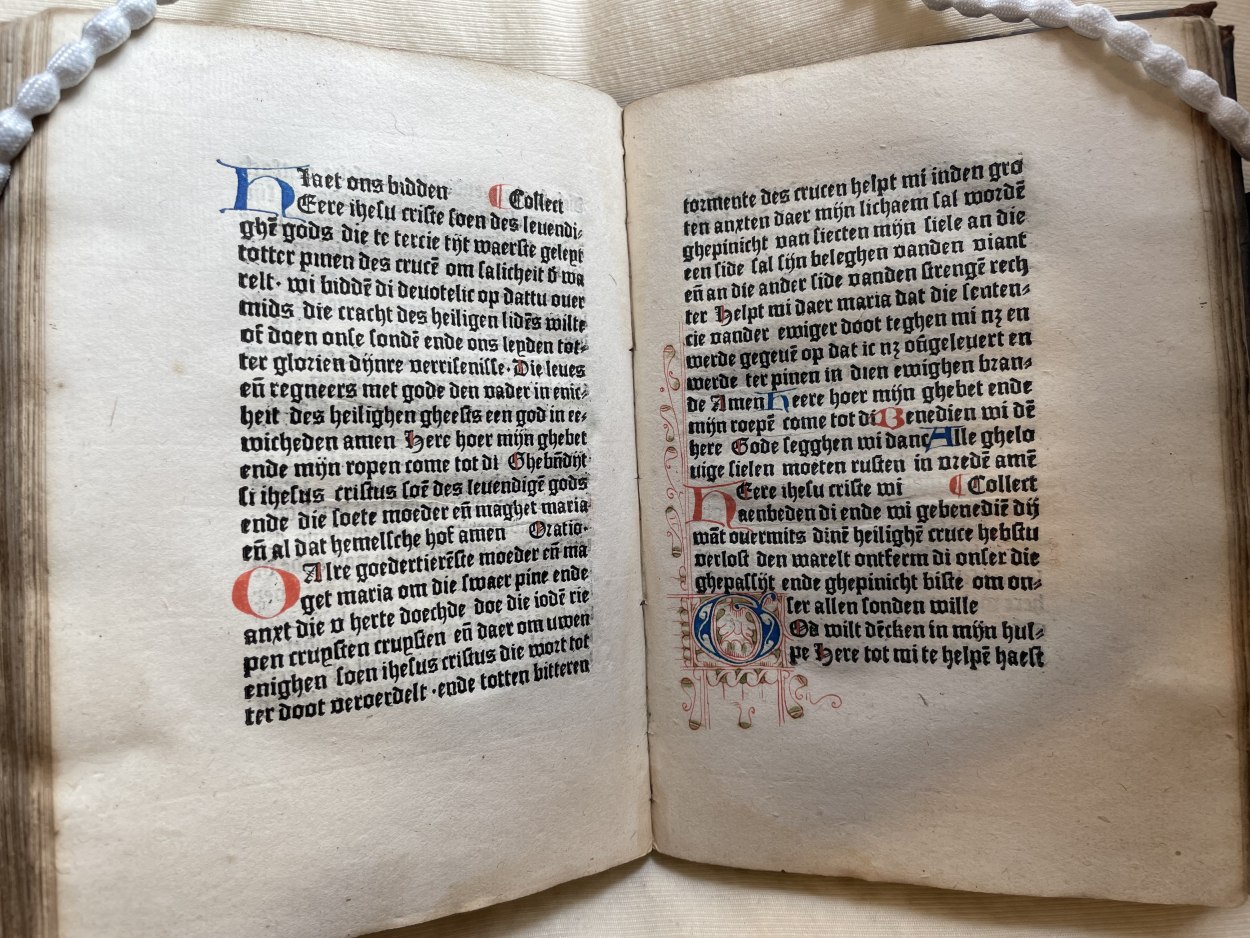 laet ons bidden ¶ Collect
HEere ihesu criste soen des leuendi⸗
ghē gods die te tercie tijt waerste geleyt
totter pinen des crucē om salicheit d̄ wa
relt· wi biddē di deuotelic op dattu ouer
mids die cracht des heiligen lidēs wilte
of doen onse sondē ende ons leyden tot⸗
ter glorien dijnre verrisenisse· Die leues
eñ regneers met gode den vader in enic⸗
heit des heilighen gheests een god in ee⸗
wicheden amen Here hoer mijn ghebet
ende mijn ropen come tot di Ghebn̄dijt
si ihesus cristus soē des leuendigē gods
ende die soete moeder eñ maghet maria
eñ al dat hemelsche hof amen Oratio·
O Alre goedertierēste moeder eñ ma
get maria om die swaer pine ende
anxt die v herte doechde doe die iodē rie
pen cruysten cruysten eñ daer om uwen
enighen soen ihesus cristus die wort tot
ter doot veroerdelt ·ende totten bitteren
tormente des crucen helpt mi inden gro
ten anxten daer mijn lichaem sal wordē
ghepinicht van siecten mijn siele an die
een side sal sijn beleghen vanden viant
eñ an die ander side vanden strengē rech
ter Helpt mi daer maria dat die senten⸗
cie vander ewiger doot teghen mi nz en
werde gegeuē op dat ic nz oūgeleuert en
werde ter pinen in dien ewighen bran⸗
de Amen Heere hoer mijn ghebet ende
mijn roepē come tot di Benedien wi dē
here Gode segghen wi danc Alle ghelo
uige sielen moeten rusten in vredē amē
HEere ihesu criste wi ¶ Collect
aenbeden di ende wi gebenediē dij
wāt ouermits dinē heilighē cruce hebstu
verlost den warelt ontferm di onser die
ghepassijt ende ghepinicht biste om on⸗
ser allen sonden wille
GOd wilt dēcken in mijn hul⸗
pe Here tot mi te helpē haest